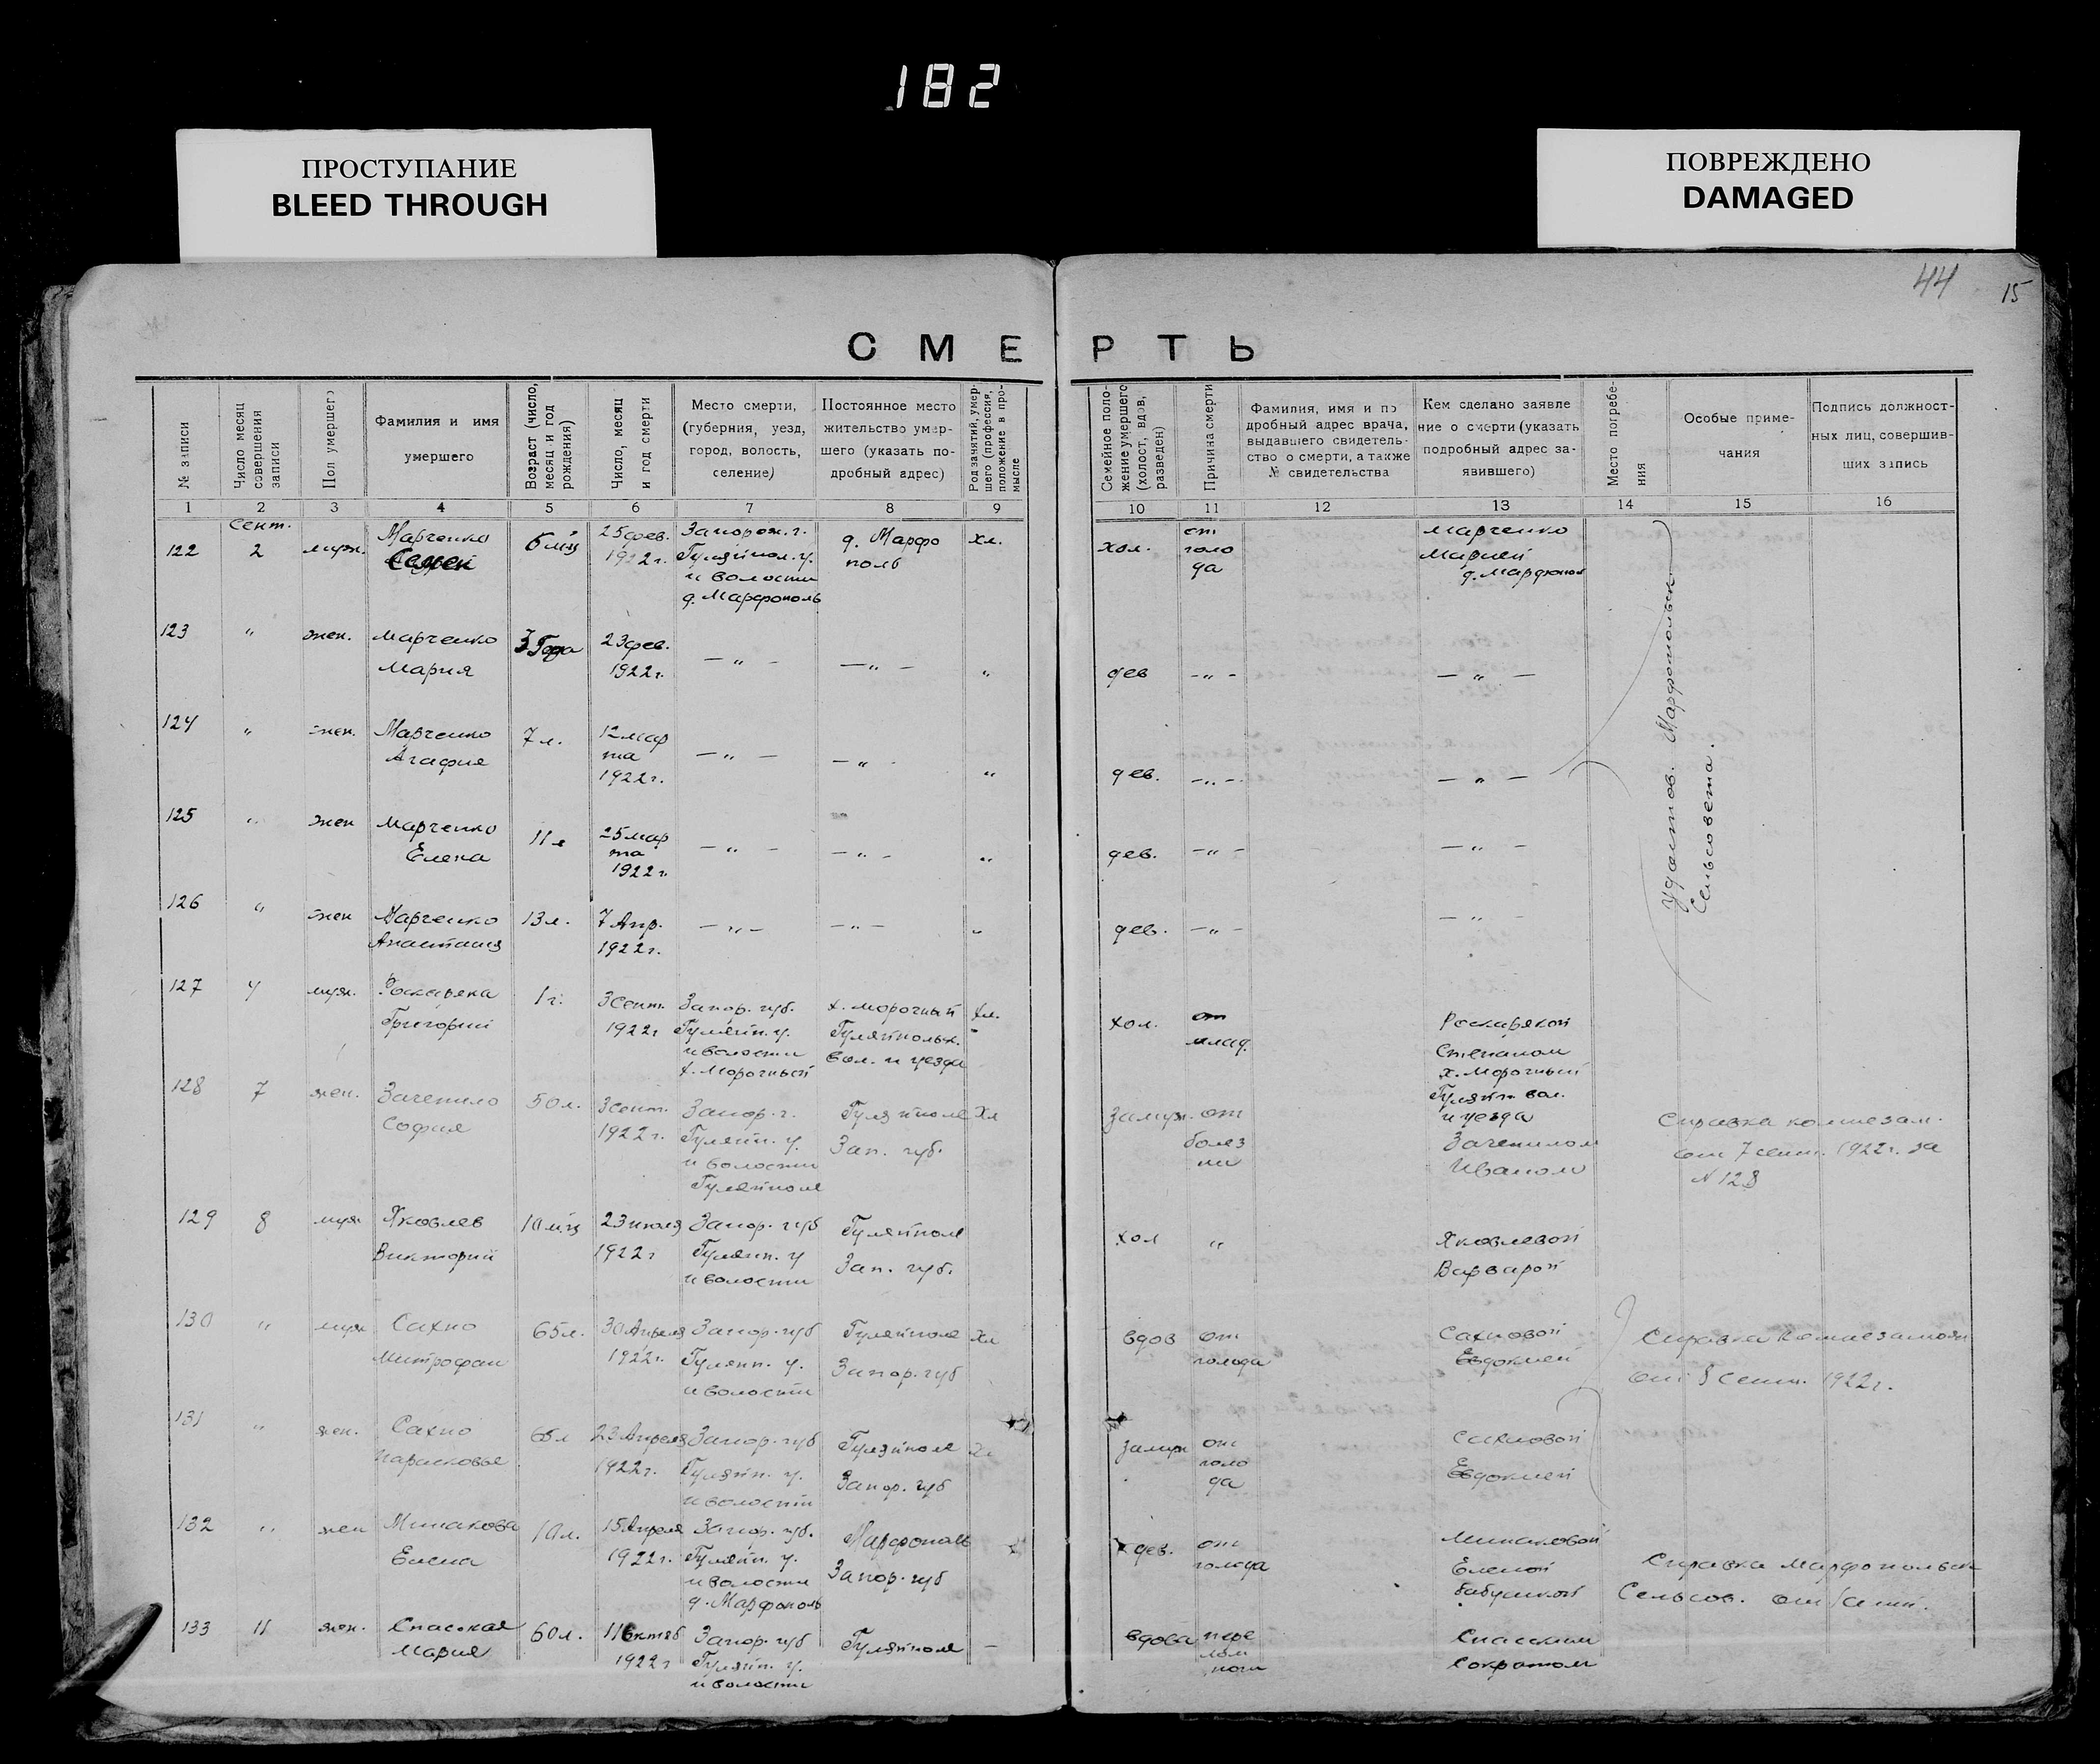 182
ПРОСТУПАНИЕ
BLEED THROUGH
ПОВРЕЖДЕНО
DAMAGED
44
15
СМЕРТЬ
№ записи
Число месяц
совершения
записи
Пол умершего
Фамилия и имя
умершего
Возраст (число,
месяц и год
рождения)
Число, месяц
и год смерти
Место смерти,
(губерния, уезд,
город, волость,
селение)
Постоянное место
жительство умер-
шего (указать по-
дробный адрес)
Род занятий, умер-
шего (профессия,
положение в про-
мысле
Семейное поло-
жение умершего
(холост, вдов,
разведен)
Причина смерти
Фамилия, имя и по
дробный адрес врача,
выдавшего свидетель-
ство о смерти, а также
№ свидетельства
Кем сделано заявле
ние о смерти (указать
подробный адрес за-
явившего)
Место погребе-
ния
Особые приме-
чания
Подпись должност-
ных лиц, совершив-
ших запись
1 2 3 4 5 6 7 8 9 10 11 12 13 14 15 16
Сент.
122 2 муж. Марченко 6 м-ц 25 фев. Запорож. г. д. Марфо хл. хол. от Марченко
Семен 1922 г. Гуляйпол. у. поль голо Марией
и волости да д. Марфополь
д. Марфополь
123 " жен. Марченко 3 Года 23 фев.
Мария 1922 г. — " — — " — " дев — " — — " —
124 " жен. Марченко 7 л. 12 мар
Агафия та — " — — " " дев. — " — — " —
1922 г.
125 " жен Марченко 11 л 25 мар
Елена та — " — — " — " дев. — " — — " —
1922 г.
126 " жен Марченко 13 л. 7 Апр. — " — — " — " дев. — " — — " —
Анастасия 1922 г.
Удостов. Марфопольск.
Сельсовета.
127 4 муж. 1 г. 3 Сент. Запор. губ. х. Морочный Хл. хол. от
Григорий 1922 г Гуляйп. у. Гуляйпольск. млад. Степаном
и волости вол. и уезда х. Морочный
х. Морочный Гуляйп. вол.
и уезда
128 7 жен. Зачепило 50 л. 3 сент. Запор. г. Гуляйполе Хл замуж. от Зачепилом Справка комнезам.
София 1922 г. Гуляйп. у. Зап. губ. болез Иваном от 7 сент. 1922 г. за
и волости ни № 128
Гуляйполе
129 8 муж Яковлев 10 м-ц 23 июля Запор. губ Гуляйполе хол " Яковлевой
Викторий 1922 г Гуляйп. у Зап. губ. Варварой
и волости
130 " муж Сахно 65 л. 30 Апреля Запор. губ Гуляйполе Хл вдов от Сахновой Справка
Митрофан 1922 г. Гуляйп. у. Запор. губ голода Евдокией от 8 Сент. 1922 г.
и волости
131 " жен. Сахно 65 л 23 Апреля Запор. губ Гуляйполе Хл замуж от Сахновой
Парасковья 1922 г. Гуляйп. у. Запор. губ голо Евдокией
и волости да
132 " жен Минакова 10 л. 15 Апреля Запор. губ. Марфополь дев. от Минаковой Справка Марфопольск
Елена 1922 г. Гуляйп. у. Запор. губ голода Еленой Сельсов. от 1 Сент.
и волости бабушкой
д. Марфополь
133 11 жен. Спасская 60 л. Запор. губ Гуляйполе — вдова пере Спасским
Мария 1922 г Гуляйп. у. лом Сократом
и волости ноги